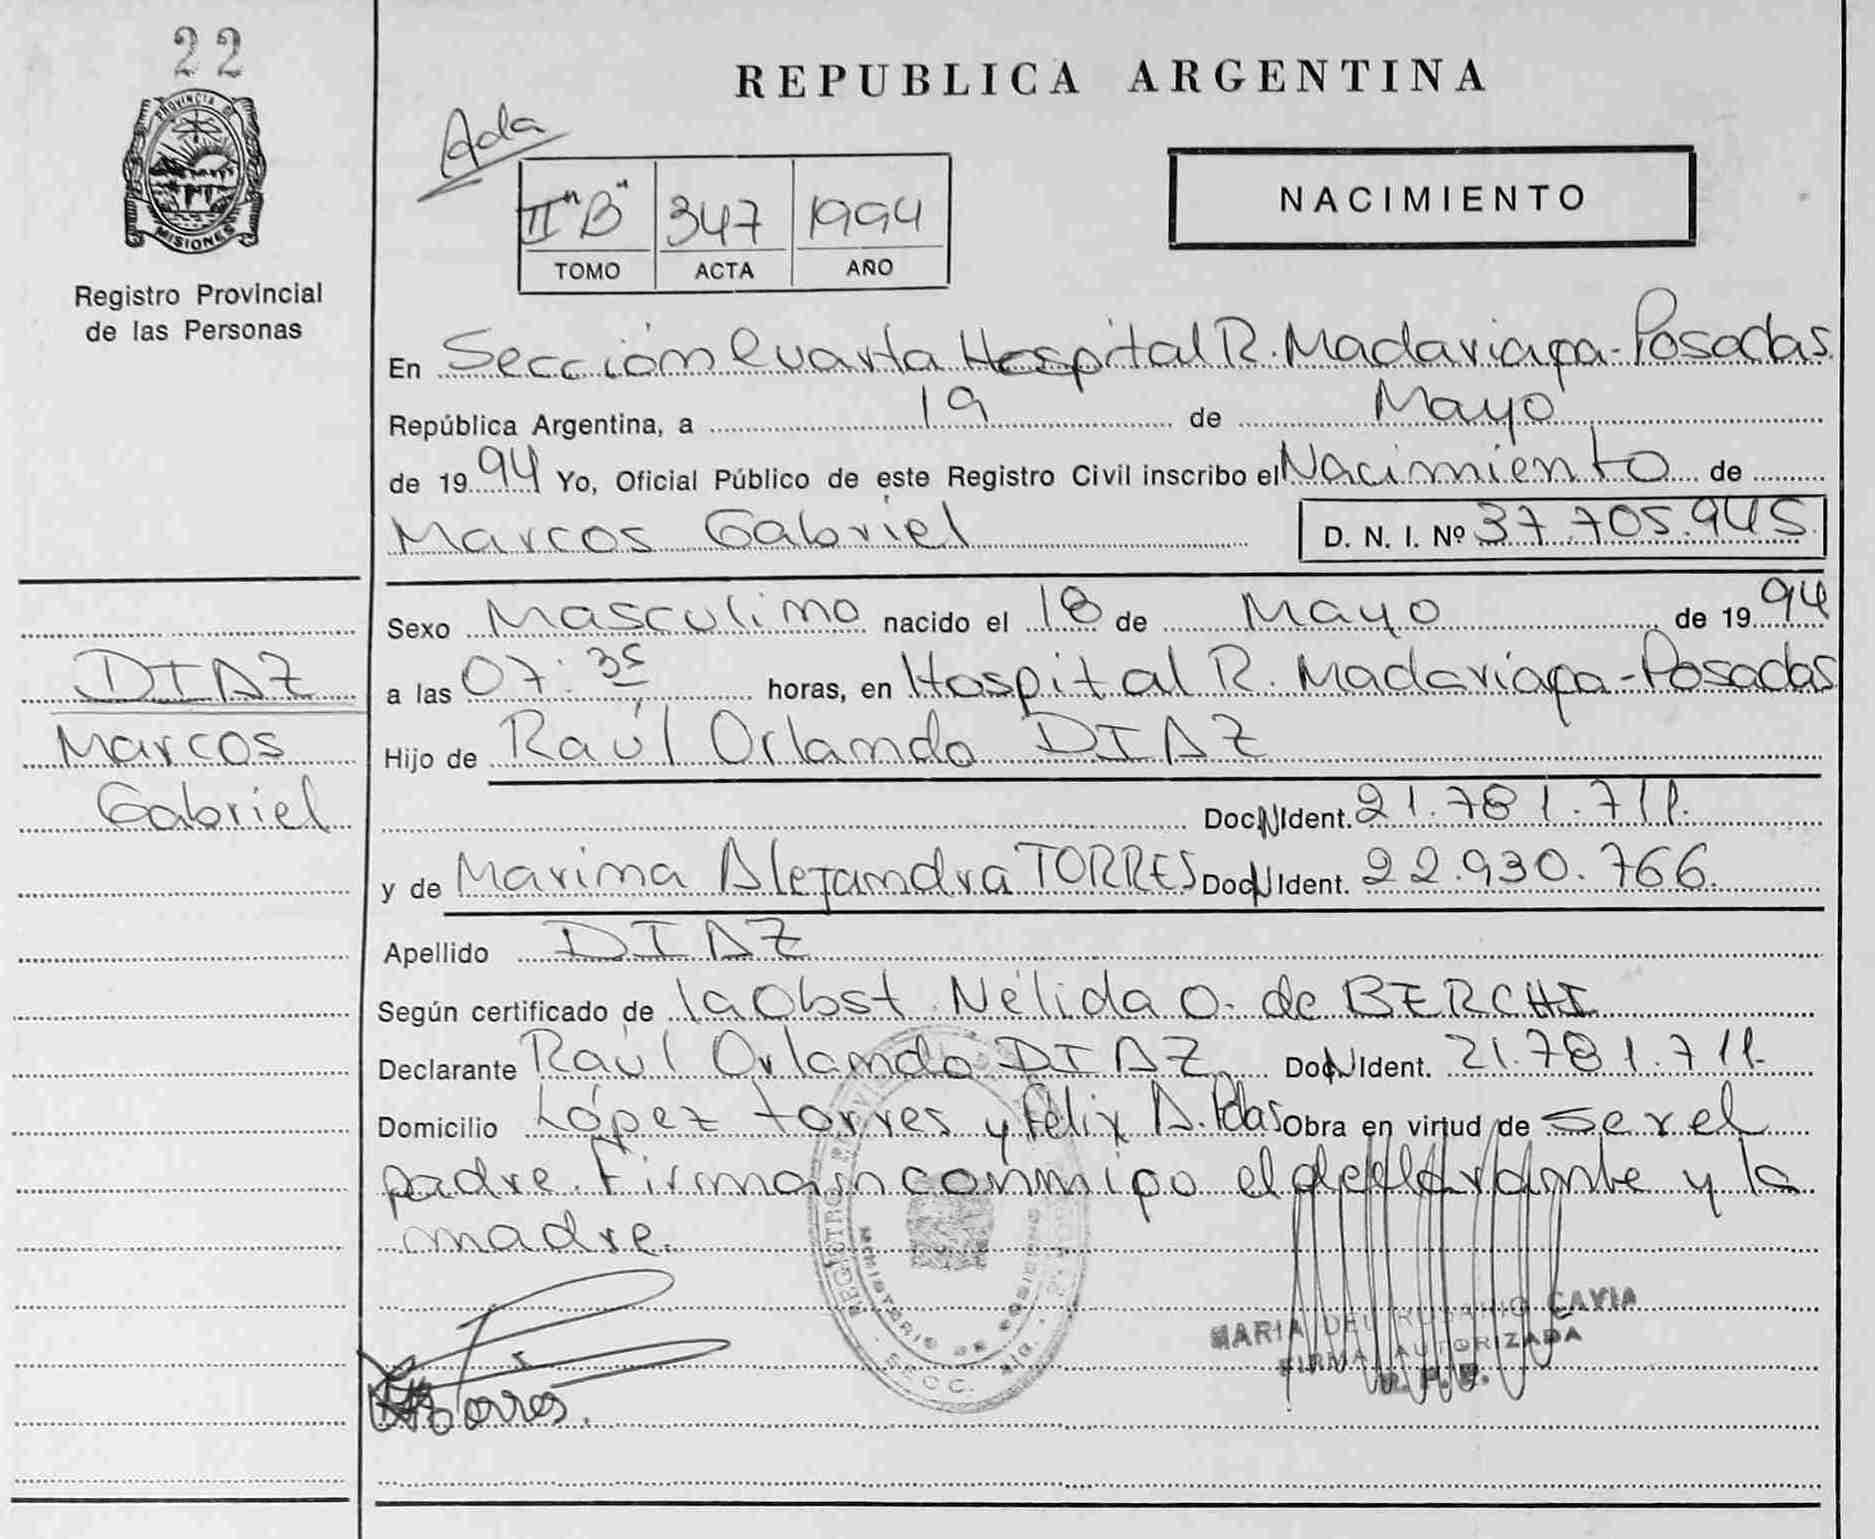 22
PROVINCIA DE
MISIONES
Registro Provincial
de las Personas
REPUBLICA ARGENTINA
Ada
II "B" 347 1994
TOMO ACTA AÑO
NACIMIENTO
En Sección Cuarta Hospital R. Madariaga - Posadas
República Argentina, a 19 de Mayo
de 1994 Yo, Oficial Público de este Registro Civil inscribo el Nacimiento de
Marcos Gabriel D. N. I. Nº 37.705.945
Sexo Masculino nacido el 18 de Mayo de 1994
a las 07:35 horas, en Hospital R. Madariaga - Posadas
Hijo de Raúl Orlando DIAZ
Doc.N.Ident. 21.781.711.
y de Marina Alejandra TORRES Doc.N.Ident. 22.930.766.
Apellido DIAZ
Según certificado de la Obst. Nélida O. de BERCHI
Declarante Raúl Orlando DIAZ Doc.N.Ident. 21.781.711.
Domicilio López torres y Félix A. Obra en virtud de ser el
padre. Firman conmigo el declarante y la
madre.
DIAZ
Marcos
Gabriel
REGISTRO
MINISTERIO DE GOBIERNO
SECC.
MARIA DEL ROSARIO CAVIA
FIRMA AUTORIZADA
R. P. P.
Torres.